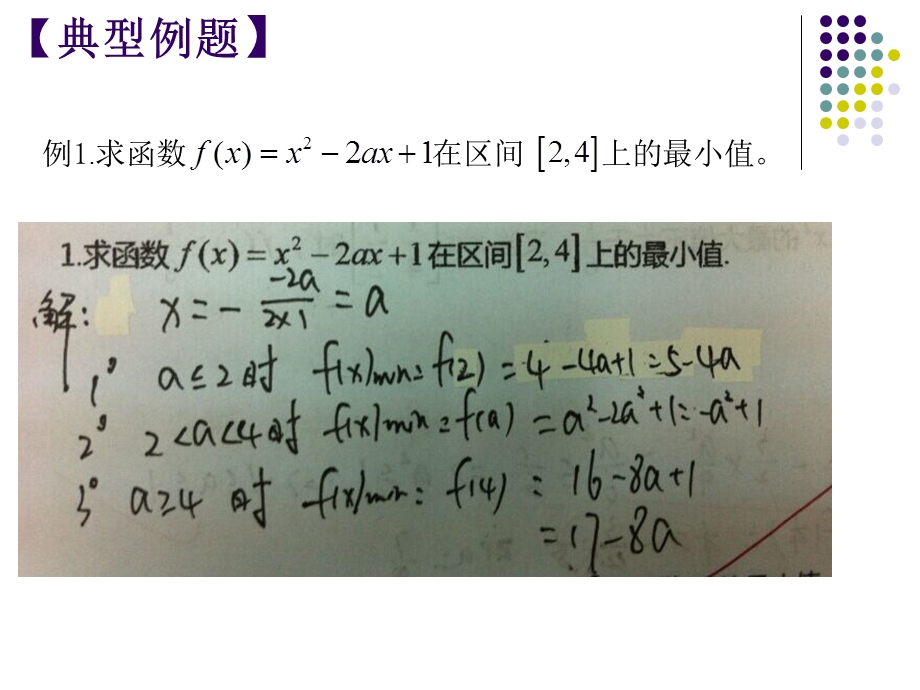 【典型例题】
例1.求函数 f(x) = x² − 2ax + 1在区间 [2,4]上的最小值。
1.求函数 f(x) = x² − 2ax + 1 在区间[2,4] 上的最小值.
解: x = − -2a / 2×1 = a
1° a≤2时 f(x)min = f(2) = 4 −4a+1 = 5−4a
2° 2<a<4时 f(x)min = f(a) = a²−2a²+1 = −a²+1
3° a≥4 时 f(x)min = f(4) = 16−8a+1
= 17−8a